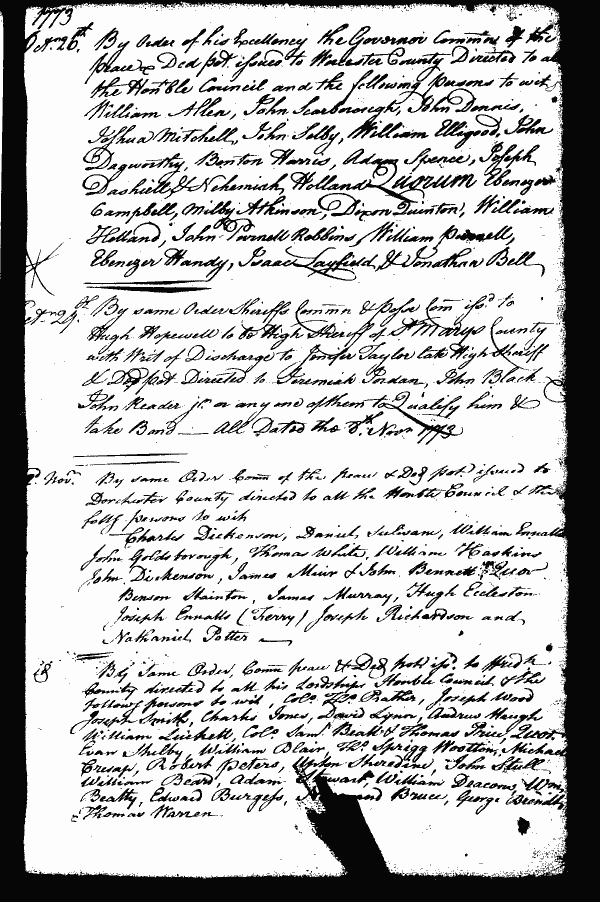 1773
Octr. 26th. By Order of his Excellency the Governor Commn of the
peace & Ded pot. issued to Worcester County Directed to all
the Honble Council and the following persons to wit,
William Allen, John Scarborough, John Dennis,
Joshua Mitchell, John Selby, William Elligood, John
Dagworthy, Benton Harris, Adam Spence, Joseph
Dashiell & Nehemiah Holland Quorum Ebenezer
Campbell, Milby Atkinson, Dixon Quinton, William
Holland, John Purnell Robbins, William Purnell,
Ebenezer Handy, Isaac Layfield, & Jonathan Bell
Octr. 29th. By same Order Sheriffs Commn & Posse Com issd. to
Hugh Hopewell to be High Sheriff of St. Marys County
with Writ of Discharge to Jenifer Taylor late High Sheriff
& Ded pot. Directed to Jeremiah Jordan, John Black
John Reader jr. or any one of them to Qualify him &
take Bond — All Dated the 8th. Novr 1773
Novr. By same Order Comn of the peace & Ded pot. issued to
Dorchester County directed to all the Honble Council & the
follg persons to wit
Charles Dickenson, Daniel Sulivane, William Ennalls
John Goldsborough, Thomas White, William Haskins
John Dickenson, James Muir & John Bennett Quor
Benson Stainton, James Murray, Hugh Eccleston
Joseph Ennalls (Ferry) Joseph Richardson and
Nathaniel Potter —
18 By Same Order, Comn peace & Ded pot. issd. to Fredk
County directed to all his Lordships Honble Council & the
following persons to wit, Colo. Thos. Prather, Joseph Wood
Joseph Smith, Charles Jones, David Lynn, Andrew Heugh
William Luckett, Colo. Saml. Beall & Thomas Price, Quor.
Evan Shelby, William Blair, Thos. Sprigg Wootton, Michael
Cresap, Robert Peters, Upton Sheredine, John Stull
William Beard, Adam Stewart, William Deacoms, Wm.
Beatty, Edward Burgess, Bruce, George
Thomas Warren